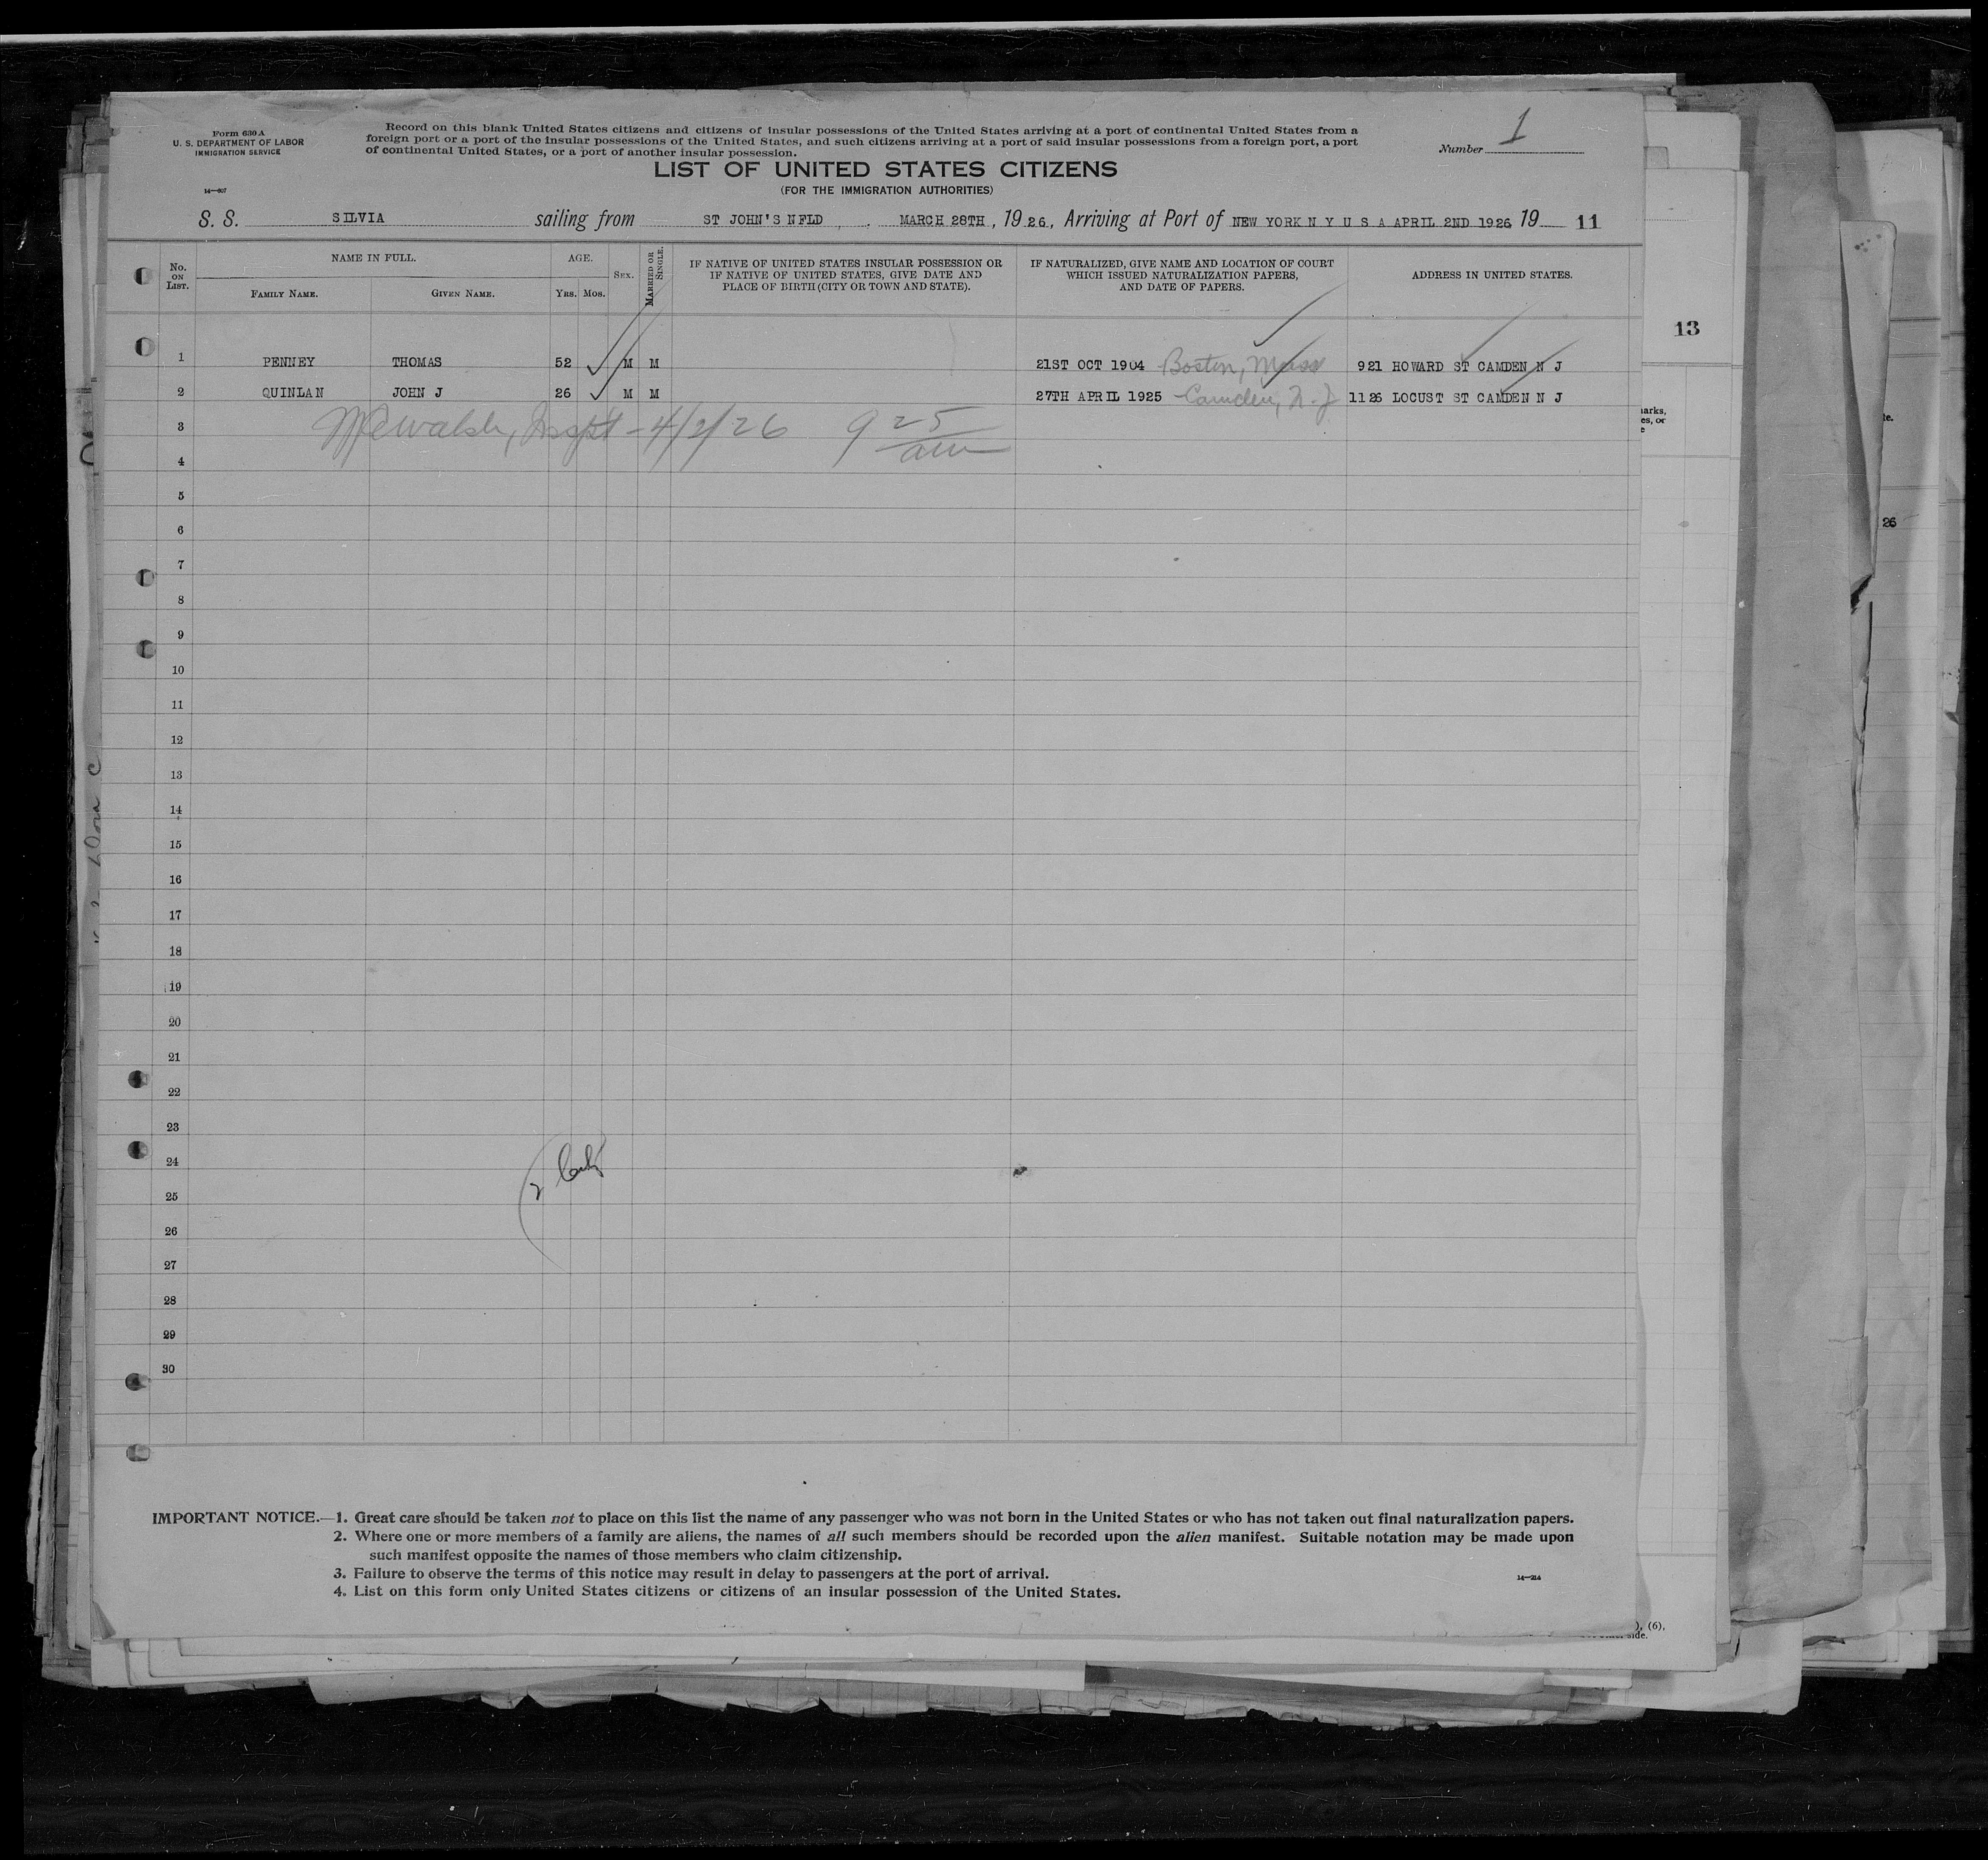 Form 630 A
U. S. DEPARTMENT OF LABOR
IMMIGRATION SERVICE
14—607
Record on this blank United States citizens and citizens of insular possessions of the United States arriving at a port of continental United States from a
foreign port or a port of the insular possessions of the United States, and such citizens arriving at a port of said insular possessions from a foreign port, a port
of continental United States, or a port of another insular possession.
Number 1
LIST OF UNITED STATES CITIZENS
(FOR THE IMMIGRATION AUTHORITIES)
S. S. SILVIA sailing from ST JOHN'S NFLD, MARCH 28TH, 1926, Arriving at Port of NEW YORK N Y U S A APRIL 2ND 1926 19 11
No. ON LIST.
NAME IN FULL.
FAMILY NAME.
GIVEN NAME.
AGE.
YRS. MOS.
SEX.
MARRIED OR SINGLE.
IF NATIVE OF UNITED STATES INSULAR POSSESSION OR
IF NATIVE OF UNITED STATES, GIVE DATE AND
PLACE OF BIRTH (CITY OR TOWN AND STATE).
IF NATURALIZED, GIVE NAME AND LOCATION OF COURT
WHICH ISSUED NATURALIZATION PAPERS,
AND DATE OF PAPERS.
ADDRESS IN UNITED STATES.
13
1 PENNEY THOMAS 52 M M 21ST OCT 1904 Boston, Mass 921 HOWARD ST CAMDEN N J
2 QUINLAN JOHN J 26 M M 27TH APRIL 1925 Camden, N. J 1126 LOCUST ST CAMDEN N J
3 Walsh, Inspt - 4/2/26 9 25 am
4
5
6
7
8
9
10
11
12
13
14
15
16
17
18
19
20
21
22
23
24
25
26
27
28
29
30
2
arks,
es, or
e
te.
26
IMPORTANT NOTICE.—1. Great care should be taken not to place on this list the name of any passenger who was not born in the United States or who has not taken out final naturalization papers.
2. Where one or more members of a family are aliens, the names of all such members should be recorded upon the alien manifest. Suitable notation may be made upon
such manifest opposite the names of those members who claim citizenship.
3. Failure to observe the terms of this notice may result in delay to passengers at the port of arrival.
4. List on this form only United States citizens or citizens of an insular possession of the United States.
14—214
), (6),
ide.